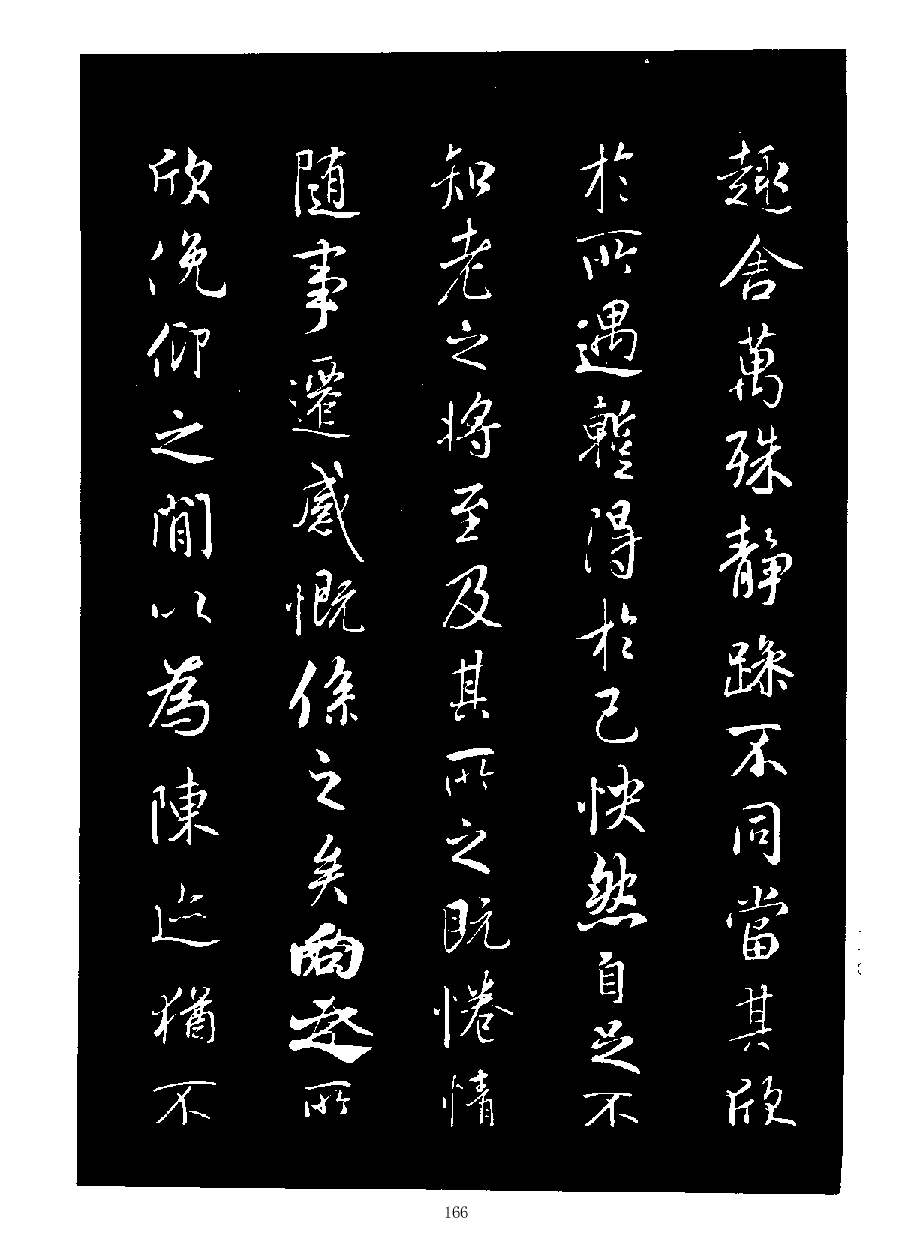 趣舍萬殊静躁不同當其欣
於所遇蹔得於己怏然自足不
知老之將至及其所之既惓情
随事遷感慨係之矣向之所
欣俛仰之閒以為陳迹猶不
166